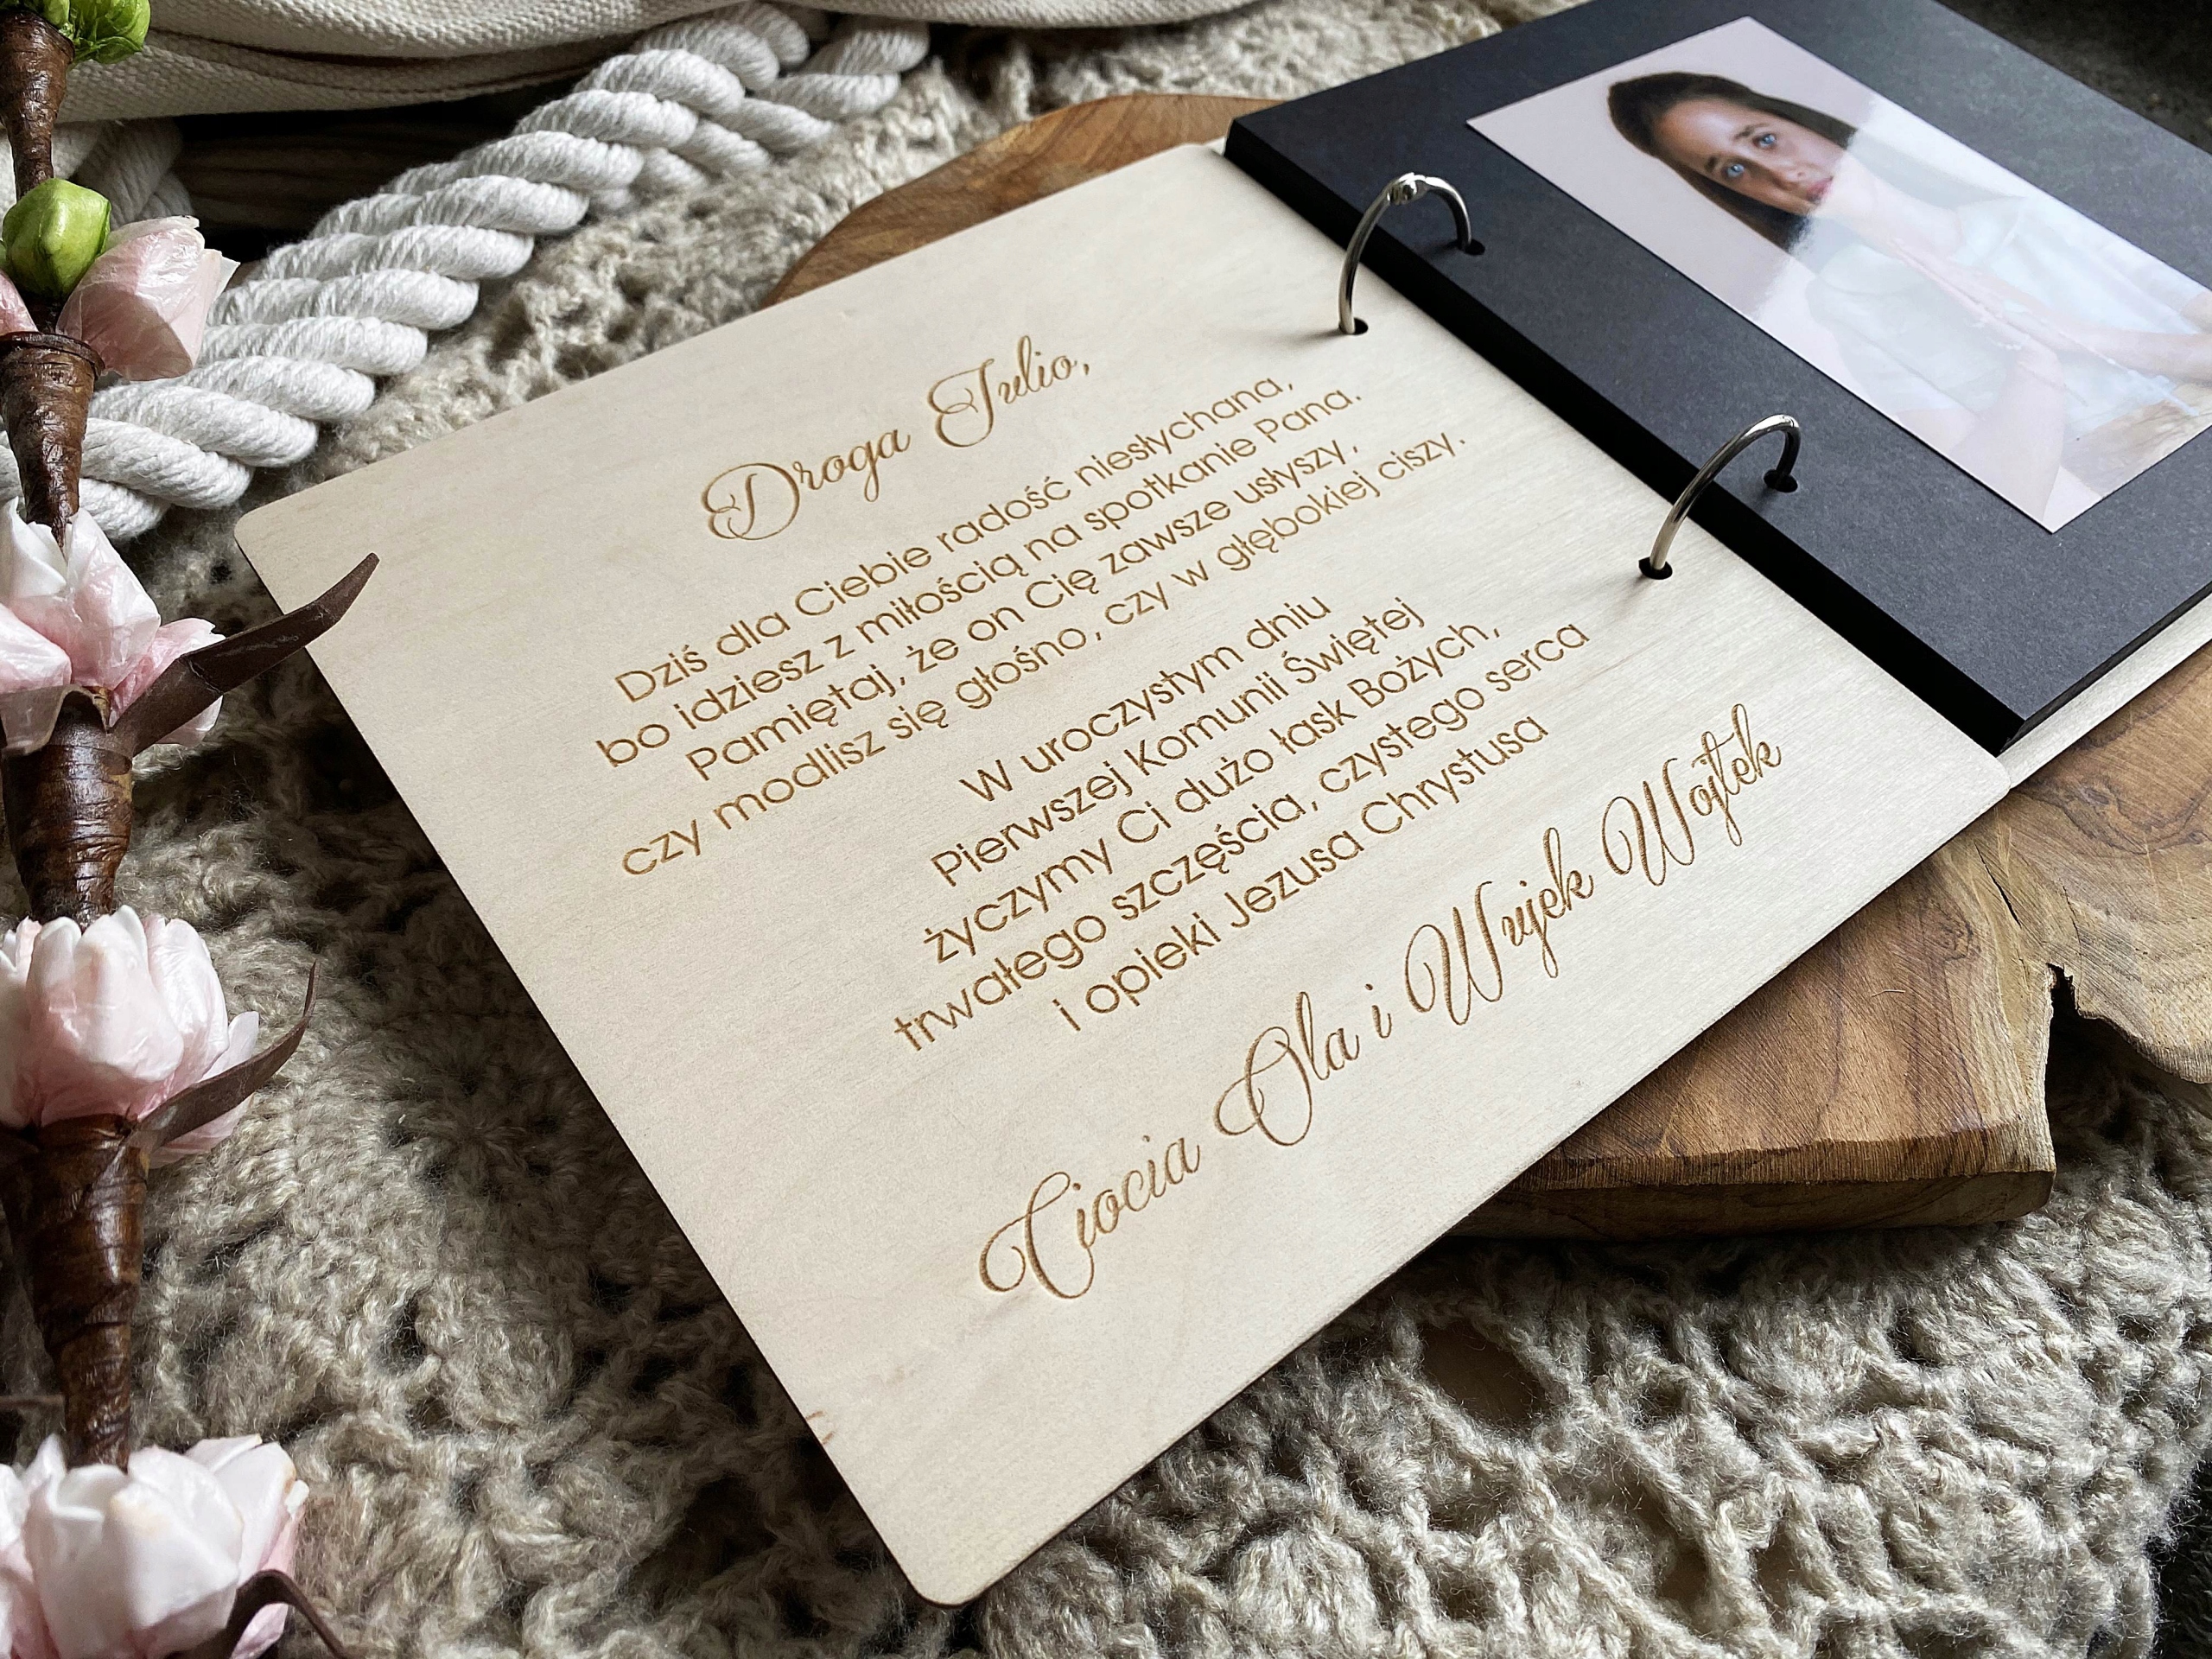 Droga Julio,
Dziś dla Ciebie radość niesłychana,
bo idziesz z miłością na spotkanie Pana.
Pamiętaj, że on Cię zawsze usłyszy,
czy modlisz się głośno, czy w głębokiej ciszy.
W uroczystym dniu
Pierwszej Komunii Świętej
życzymy Ci dużo łask Bożych,
trwałego szczęścia, czystego serca
i opieki Jezusa Chrystusa
Ciocia Ola i Wujek Wojtek